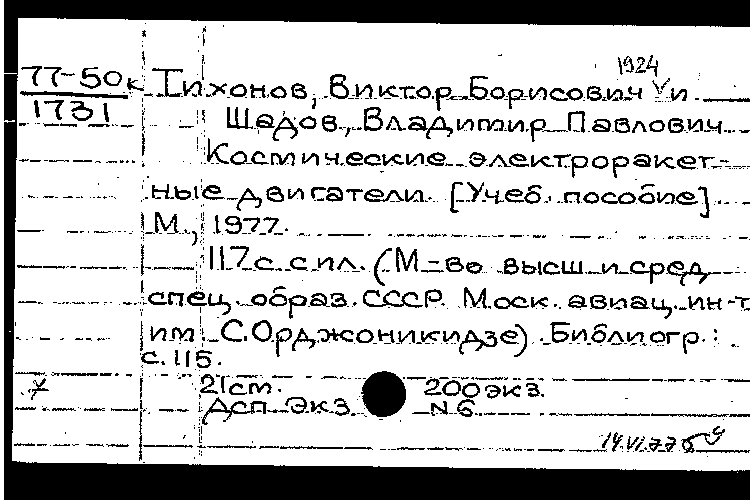 1924
77-50к Тихонов, Виктор Борисович и
1731 Шадов, Владимир Павлович
Космические электроракет-
ные двигатели. [Учеб. пособие]
М., 1977.
117 с. с ил. (М-во высш и сред
спец. образ. СССР. Моск. авиац. ин-т
им С. Орджоникидзе) Библиогр.:
с. 115.
21 cm. 200 экз.
дсп экз N6
14.VI.77